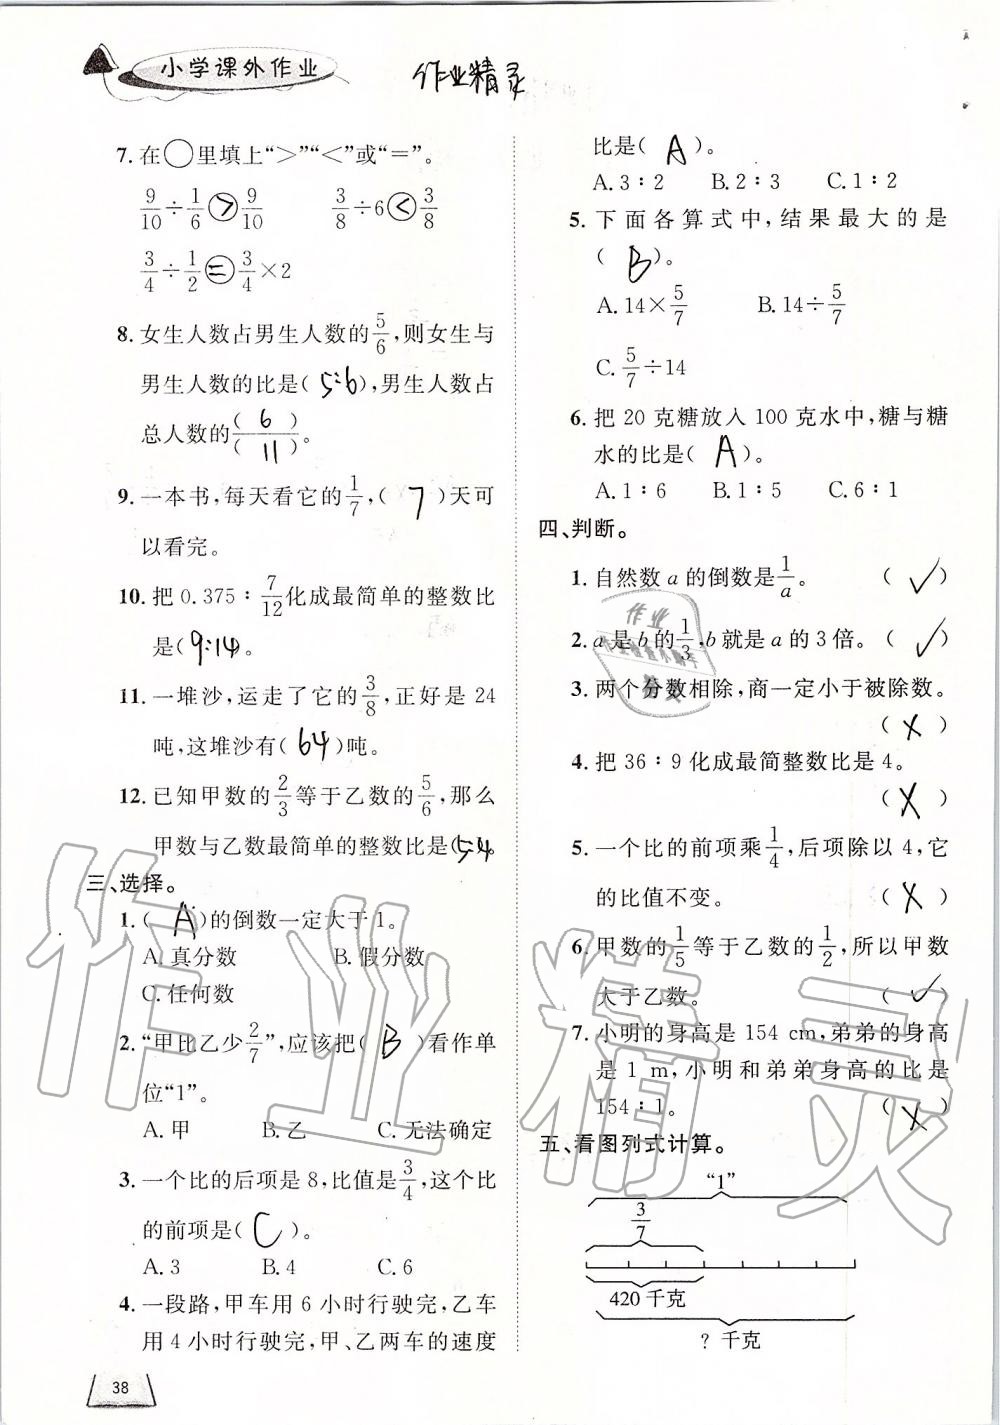 小学课外作业
作业精灵
7. 在○里填上“>”“<”或“=”。
9/10÷1/6 > 9/10  3/8÷6 < 3/8
3/4÷1/2 = 3/4×2
8. 女生人数占男生人数的5/6,则女生与
男生人数的比是(5:6),男生人数占
总人数的(6)/(11)。
9. 一本书,每天看它的1/7,(7)天可
以看完。
10. 把 0.375∶7/12化成最简单的整数比
是(9:14)。
11. 一堆沙,运走了它的3/8,正好是 24
吨,这堆沙有(64)吨。
12. 已知甲数的2/3等于乙数的5/6,那么
甲数与乙数最简单的整数比是(5:4
三、选择。
1. (A)的倒数一定大于 1。
A. 真分数  B. 假分数
C. 任何数
2. “甲比乙少2/7”,应该把(B)看作单
位“1”。
A. 甲  B. 乙  C. 无法确定
3. 一个比的后项是 8,比值是3/4,这个比
的前项是(C)。
A. 3  B. 4  C. 6
4. 一段路,甲车用 6 小时行驶完,乙车
用 4 小时行驶完,甲、乙两车的速度
38
比是(A)。
A. 3∶2  B. 2∶3  C. 1∶2
5. 下面各算式中,结果最大的是
(B)。
A. 14×5/7  B. 14÷5/7
C. 5/7÷14
6. 把 20 克糖放入 100 克水中,糖与糖
水的比是(A)。
A. 1∶6  B. 1∶5  C. 6∶1
四、判断。
1. 自然数 a 的倒数是1/a。 (✓)
2. a 是 b 的1/3,b 就是 a 的 3 倍。(✓)
3. 两个分数相除,商一定小于被除数。
(×)
4. 把 36∶9 化成最简整数比是 4。
(×)
5. 一个比的前项乘1/4,后项除以 4,它
的比值不变。 (×)
6. 甲数的1/5等于乙数的1/2,所以甲数
大于乙数。 (✓)
7. 小明的身高是 154 cm,弟弟的身高
是 1 m,小明和弟弟身高的比是
154∶1。 (×)
五、看图列式计算。
“1”
3/7
420 千克
? 千克
作业精灵
作业